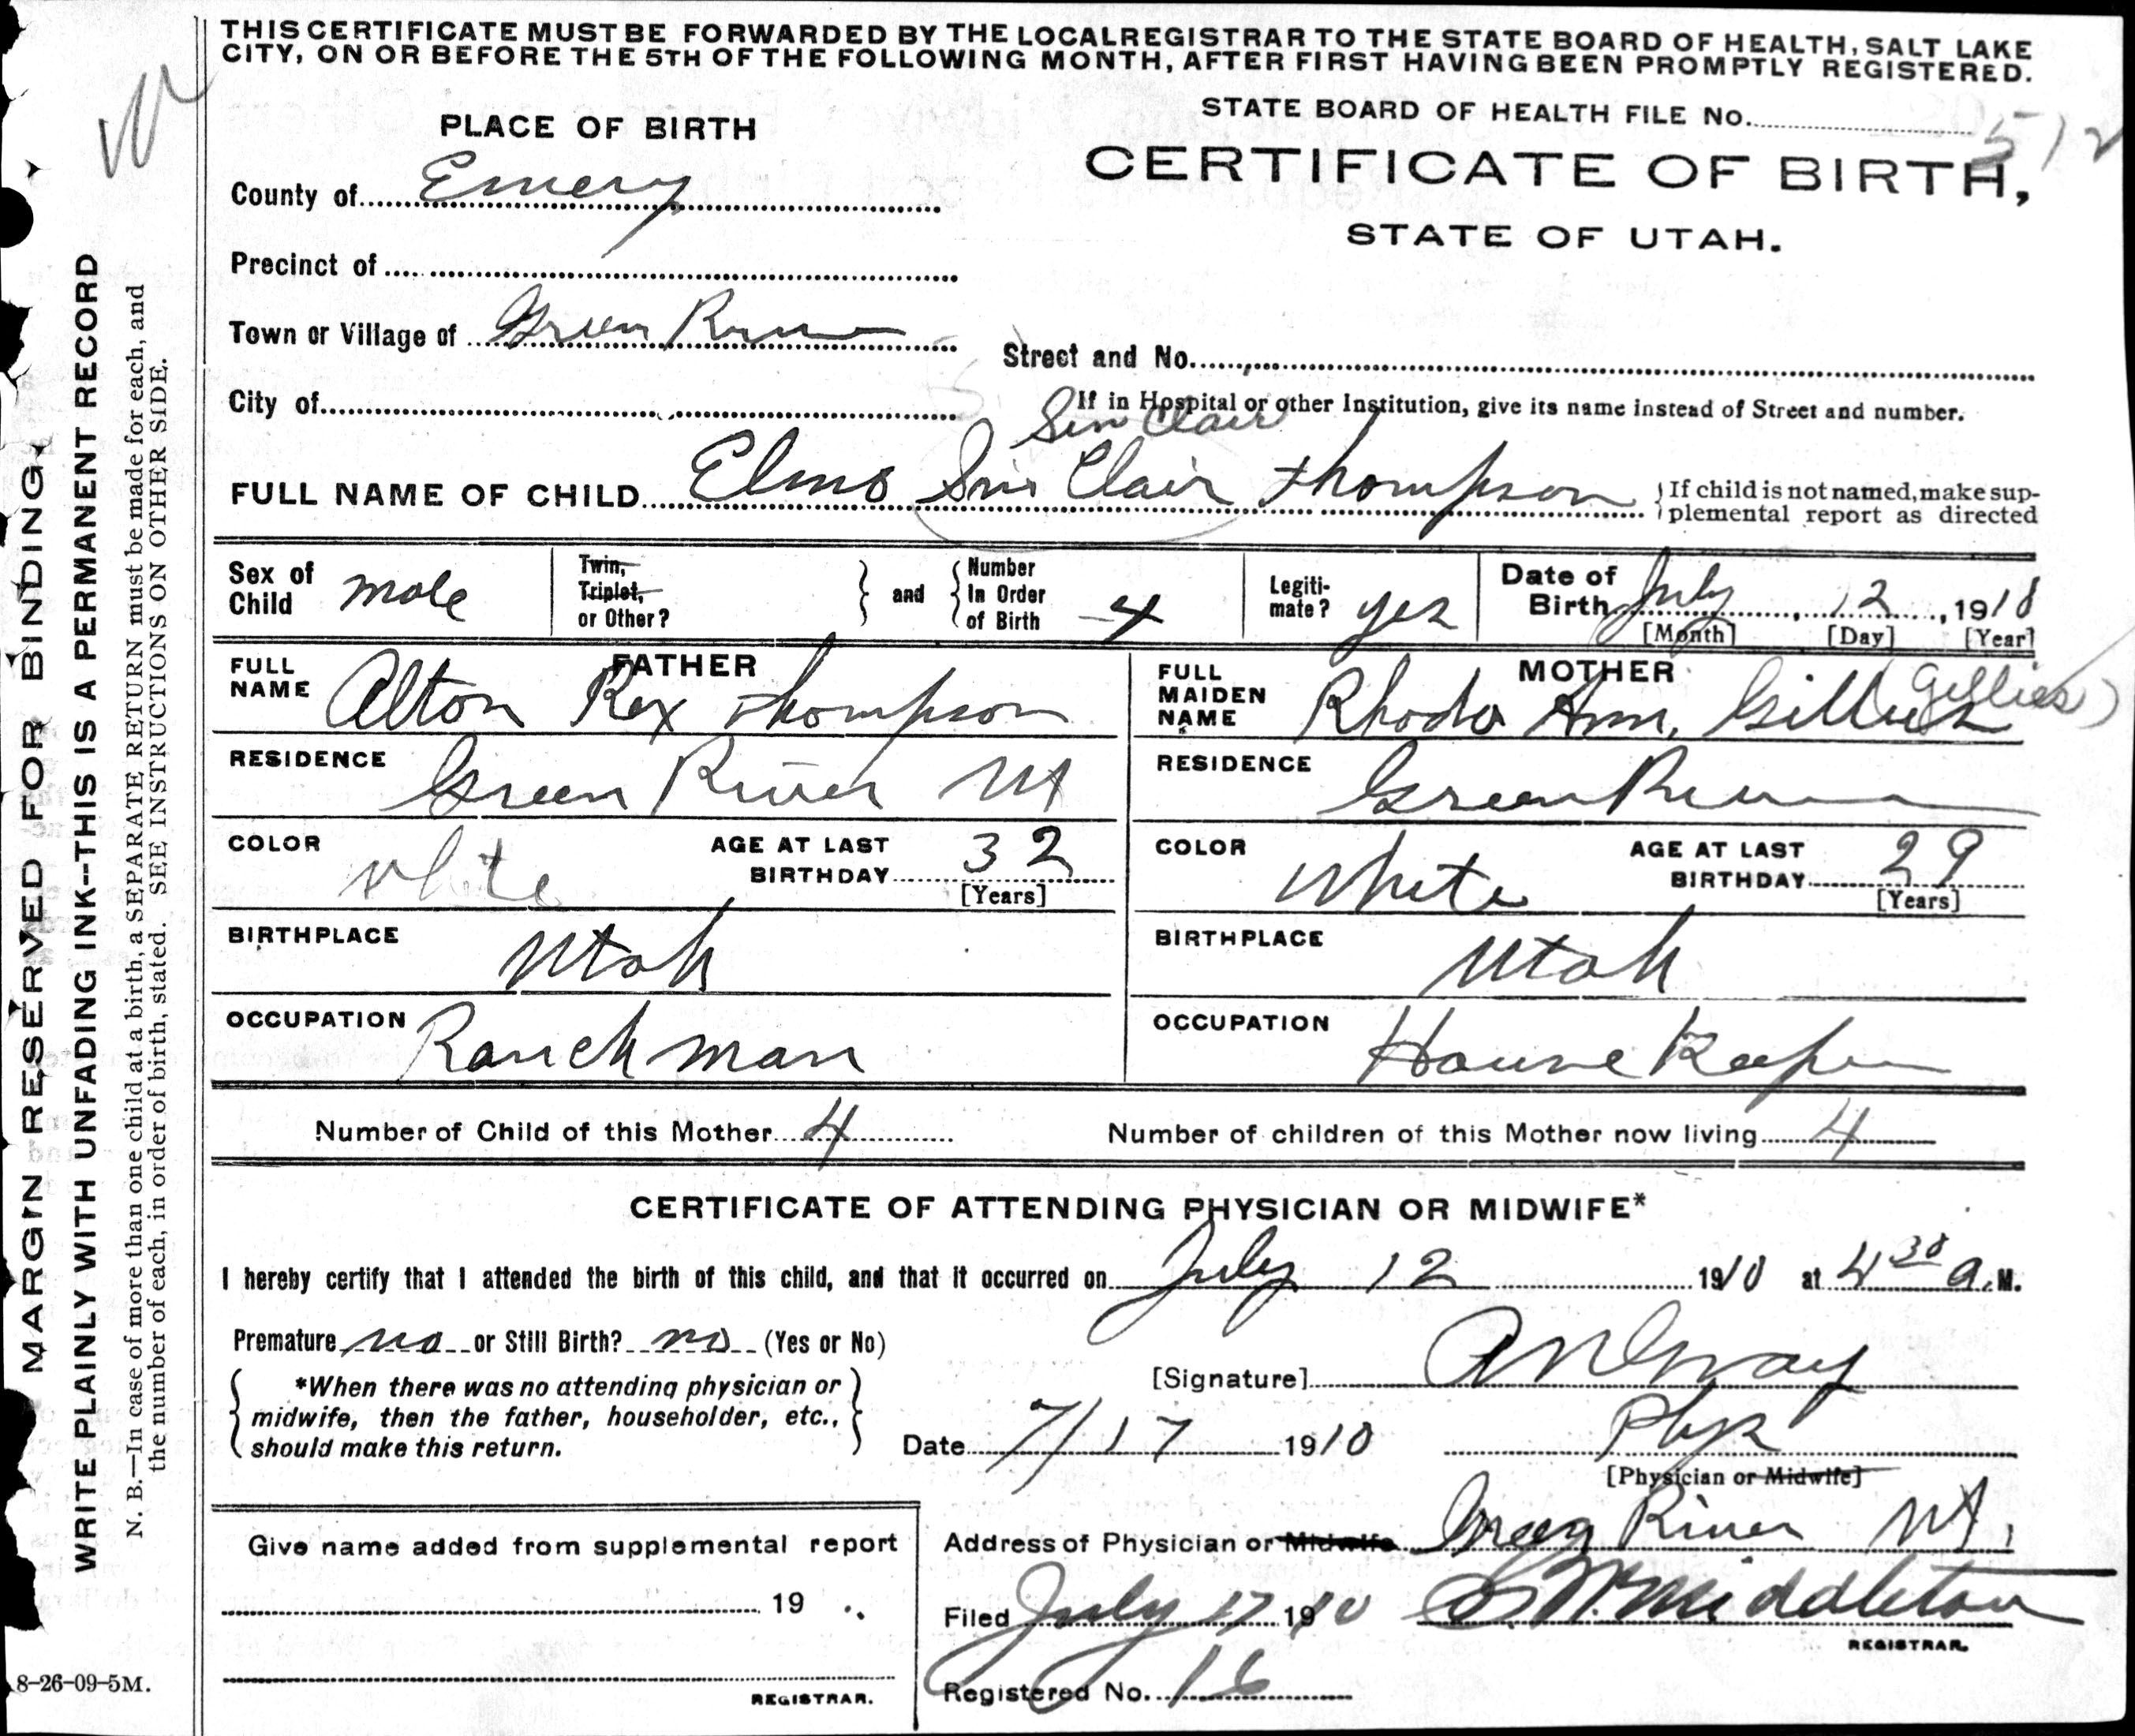 THIS CERTIFICATE MUST BE FORWARDED BY THE LOCAL REGISTRAR TO THE STATE BOARD OF HEALTH, SALT LAKE
CITY, ON OR BEFORE THE 5TH OF THE FOLLOWING MONTH, AFTER FIRST HAVING BEEN PROMPTLY REGISTERED.
STATE BOARD OF HEALTH FILE No. 512
PLACE OF BIRTH
CERTIFICATE OF BIRTH,
STATE OF UTAH.
County of Emery
Precinct of
Town or Village of Green River
Street and No.
City of
If in Hospital or other Institution, give its name instead of Street and number.
Sin Clair
FULL NAME OF CHILD Elmo Sin Clair Thompson
If child is not named, make sup-
plemental report as directed
Sex of Child male
Twin, Triplet, or Other?
and
Number In Order of Birth 4
Legiti-mate? yes
Date of Birth July 12, 1910
[Month] [Day] [Year]
FATHER
FULL NAME Alton Rex Thompson
RESIDENCE Green River Ut
COLOR White
AGE AT LAST BIRTHDAY 32
[Years]
BIRTHPLACE Utah
OCCUPATION Ranchman
MOTHER
FULL MAIDEN NAME Rhoda Ann Gillies (Gillies)
RESIDENCE Green River
COLOR White
AGE AT LAST BIRTHDAY 29
[Years]
BIRTHPLACE Utah
OCCUPATION House Keeper
Number of Child of this Mother 4
Number of children of this Mother now living 4
CERTIFICATE OF ATTENDING PHYSICIAN OR MIDWIFE*
I hereby certify that I attended the birth of this child, and that it occurred on July 12 1910 at 4 30 a.M.
Premature no or Still Birth? no (Yes or No)
*When there was no attending physician or
midwife, then the father, householder, etc.,
should make this return.
[Signature]
Date 7/17 1910
Phys
[Physician or Midwife]
Address of Physician or Midwife Green River Ut.
Filed July 17 1910 Middleton
REGISTRAR.
Registered No. 16
Give name added from supplemental report
19
REGISTRAR.
MARGIN RESERVED FOR BINDING.
WRITE PLAINLY WITH UNFADING INK--THIS IS A PERMANENT RECORD
N. B.—In case of more than one child at a birth, a SEPARATE RETURN must be made for each, and
the number of each, in order of birth, stated. SEE INSTRUCTIONS ON OTHER SIDE.
8-26-09-5M.